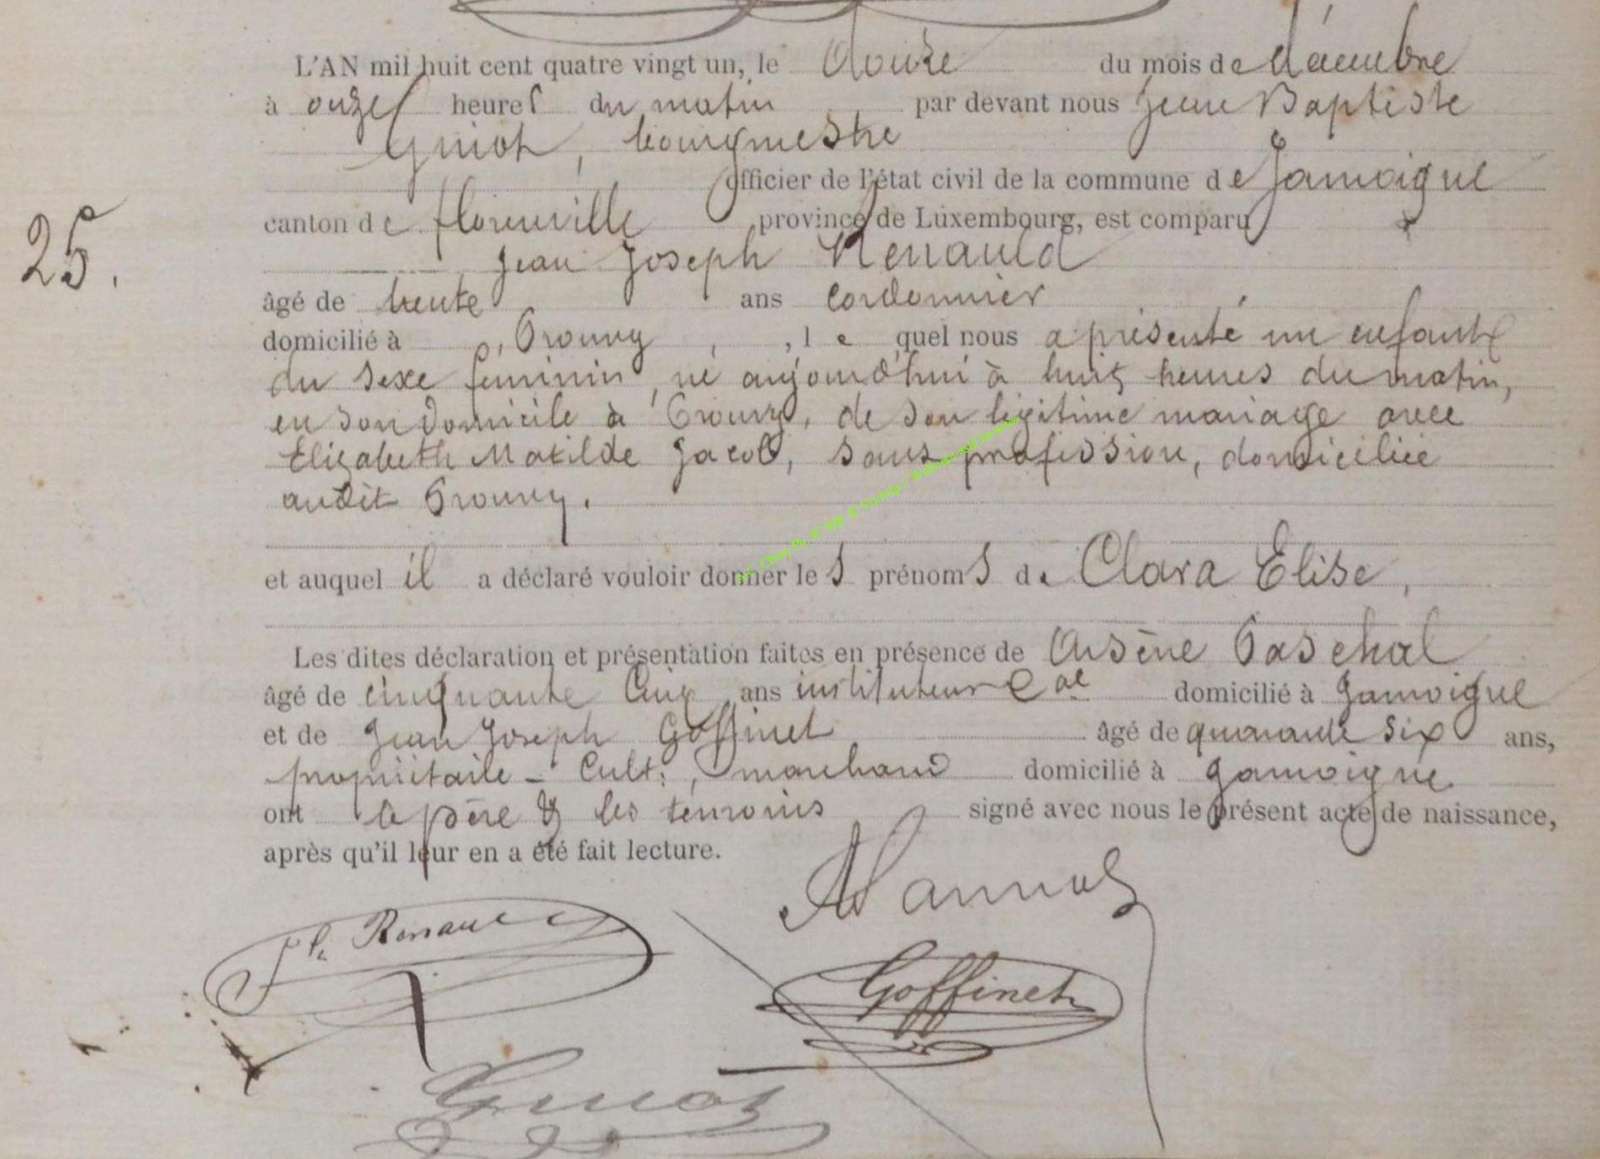 L'AN mil huit cent quatre vingt un, le douze du mois de décembre
à onze heures du matin par devant nous Jean Baptiste
Guiot, bourgmestre
officier de l'état civil de la commune de Jamoigne
25. canton de florenville province de Luxembourg, est comparu
Jean Joseph Renauld
âgé de trente ans cordonnier
domicilié à Prouvy, le quel nous a présenté un enfant
du sexe féminin, né aujourd'hui à huit heures du matin,
en son domicile à Prouvy, de son légitime mariage avec
Elizabeth Matilde Jacob, sans profession, domiciliée
audit Prouvy.
et auquel il a déclaré vouloir donner les prénoms de Clara Elise,
Les dites déclaration et présentation faites en présence de Arsène Paschal
âgé de cinquante cinq ans instituteur Cal domicilié à Jamoigne
et de Jean Joseph Goffinet âgé de quarante six ans,
propriétaire - Cult:, marchand domicilié à Jamoigne
ont le père & les témoins signé avec nous le présent acte de naissance,
après qu'il leur en a été fait lecture.
Renauld
Goffinet
Guiot